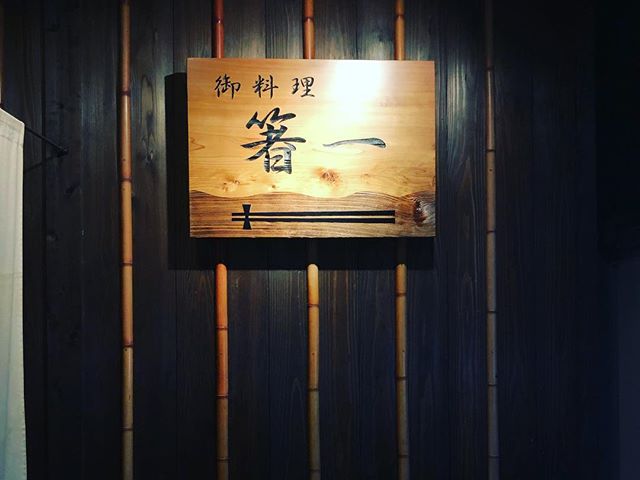 御料理
箸一